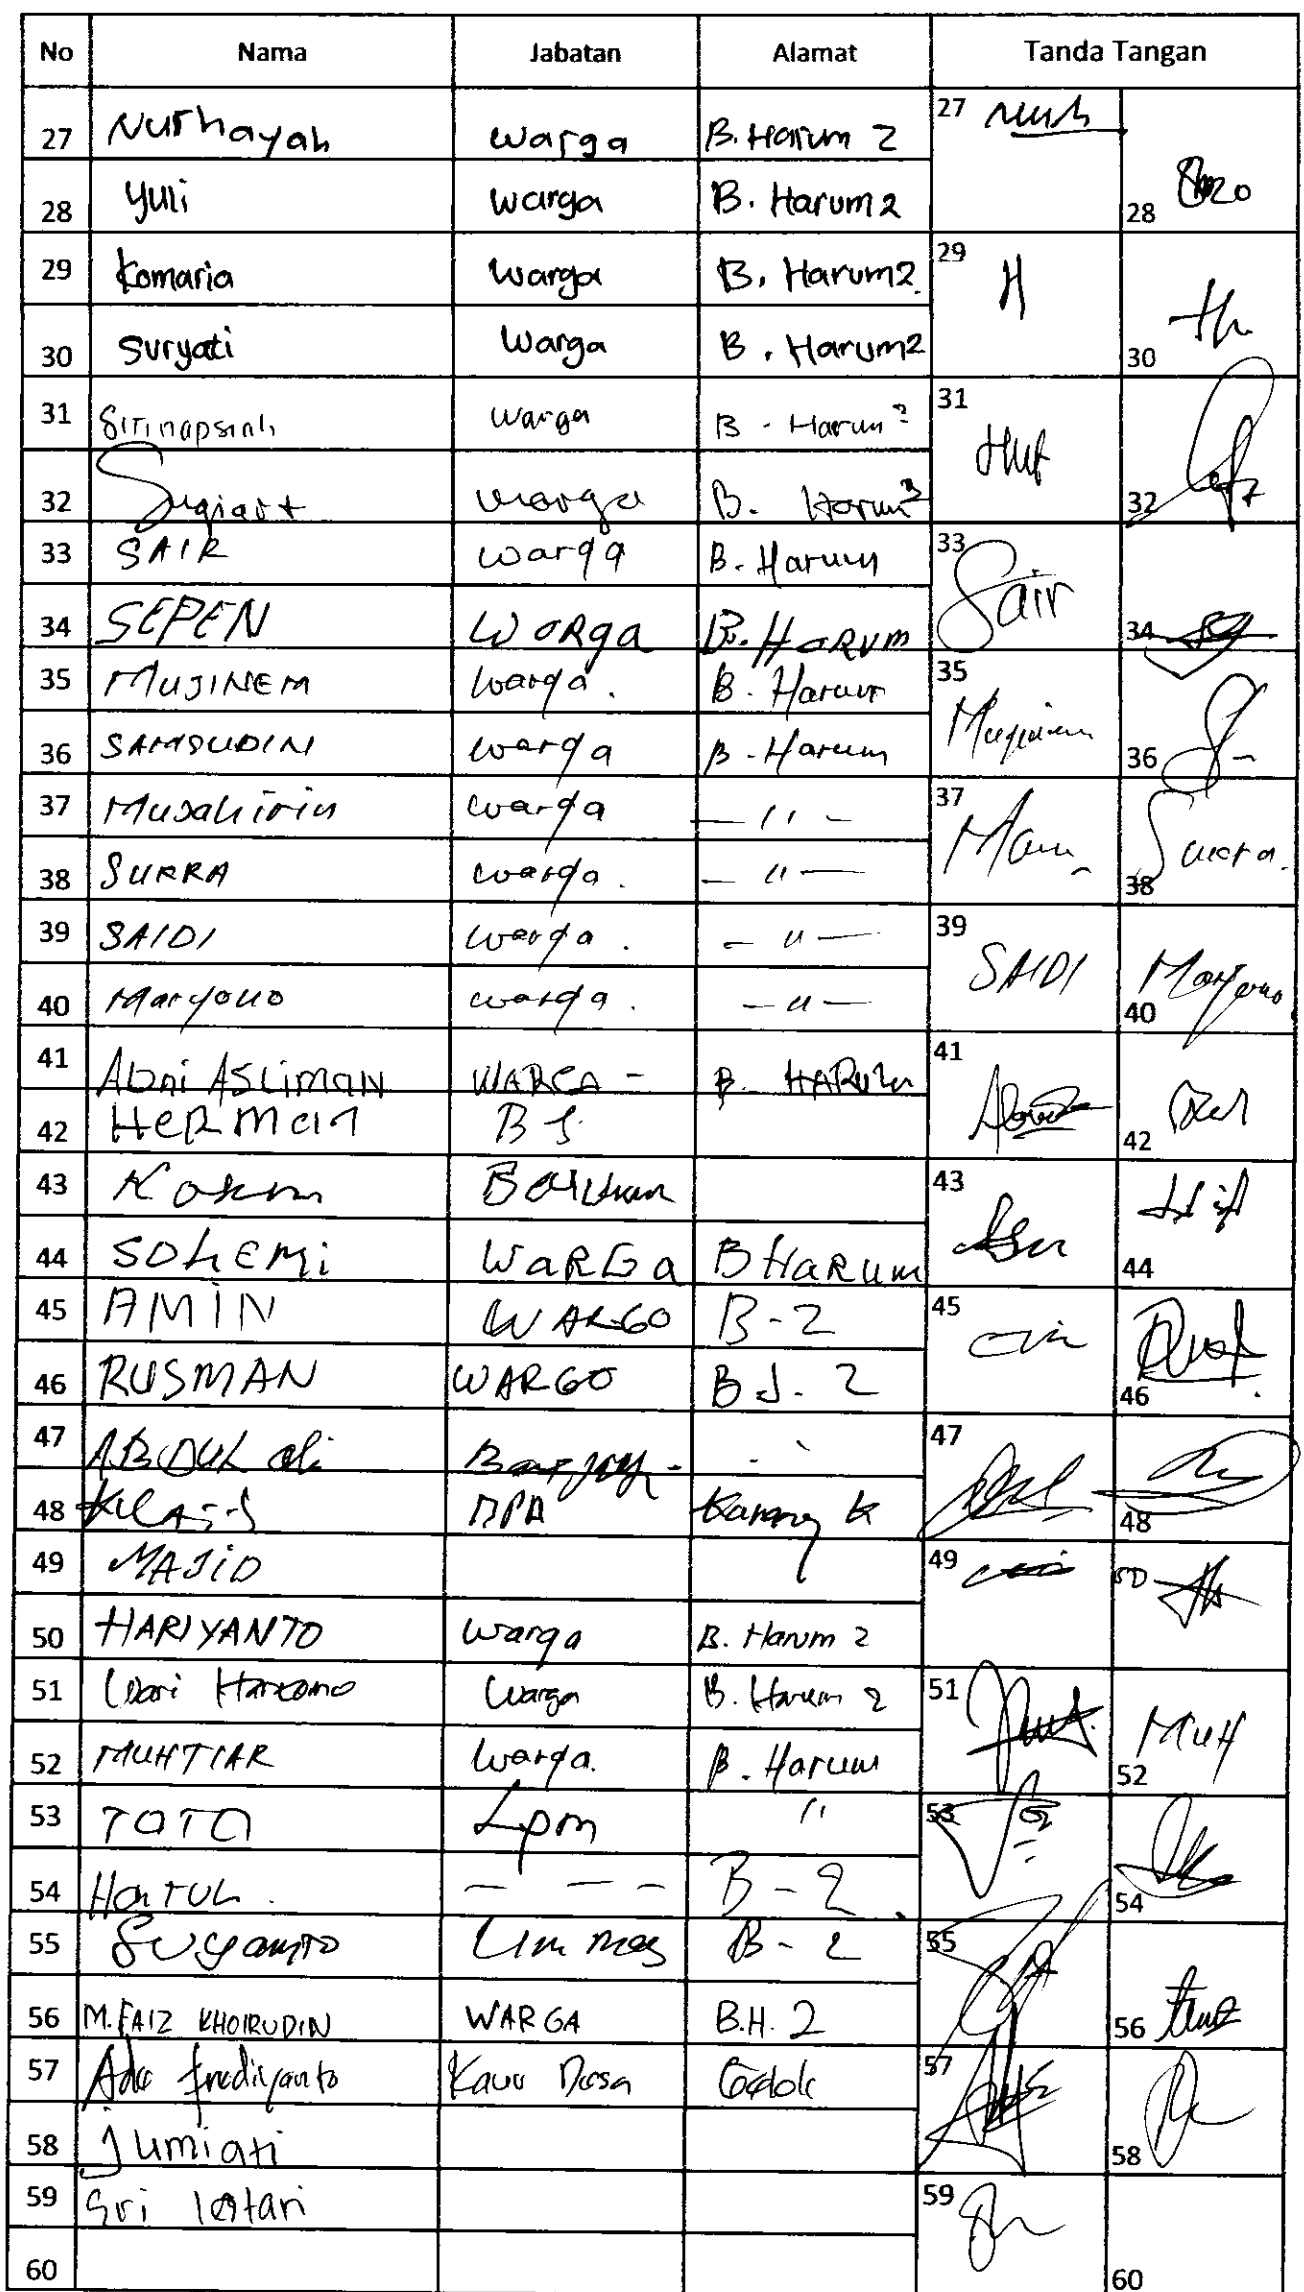 No Nama Jabatan Alamat Tanda Tangan
27 Nurhayah warga B. Harum 2 27
28 Yuli warga B. Harum 2 28
29 Komaria warga B. Harum 2 29 H
30 Suryati warga B. Harum 2 30
31 Sitinapsiah warga B. Harum 2 31
32 Sugiart warga B. Harum 32
33 SAIR warga B. Harum 33 Sair
34 SEPEN WORga B. HORUM 34
35 MUJINEM warga. B. Harum 35
36 SAMSUDIN warga B. Harum 36
37 Musahirin warga — 〃 — 37
38 SUKRA warga. — 〃 — 38
39 SAIDI warga. — 〃 — 39 SAIDI
40 Maryono warga. — 〃 — 40 Maryono
41 Abni ASLIMAN WARGA - B. HARUM 41
42 HERMAN 42
43 43
44 SOHEMi WARGa B HARUM 44
45 AMIN WARGO B-2 45
46 RUSMAN WARGO B J. 2 46
47 ABDUL ali 47
48 Karang K 48
49 MAJID 49
50 HARIYANTO warga B. Harum 2 50
51 Wari Hartono warga B. Harum 2 51
52 MUHTIAR warga. B. Harum 52 MUH
53 TOTO Lpm 〃 53
54 B-2 54
55 Sugianto Linmas B-2 55
56 M. FAIZ KHOIRUDIN WARGA B.H. 2 56
57 Ade frediyanto Kaur Desa 57
58 jumiati 58
59 Sri lestari 59
60 60